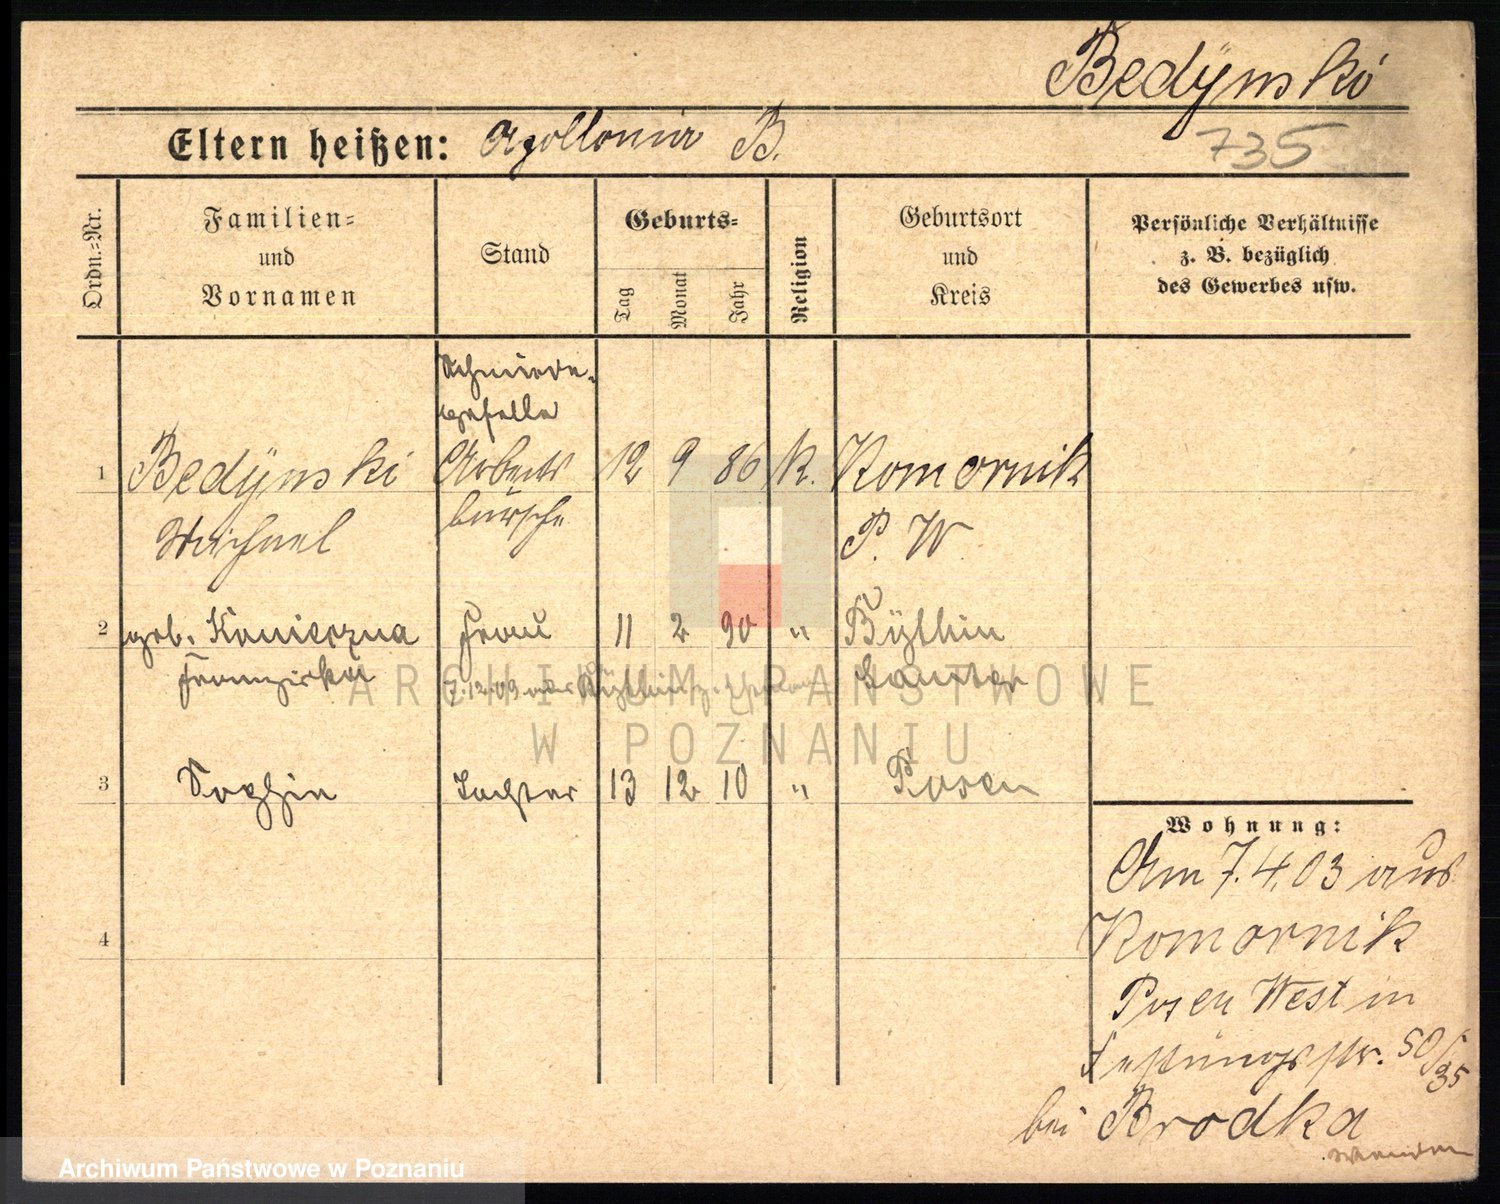 Bedÿnski
735
Eltern heißen: Apollonia B.
Ordn.=Nr.
Familien=
und
Vornamen
Stand
Geburts=
Tag
Monat
Jahr
Religion
Geburtsort
und
Kreis
Persönliche Verhältnisse
z. B. bezüglich
des Gewerbes usw.
Schmiede-
geselle
1 Bedÿnski Arbeits 12 9 86 K. Komornik
Michael bursche P. W
2 geb. Konieczna Frau 11 2 90 " Bÿthin
Franziska Samter
7.12.09
3 Sophie Tochter 13 12 10 " Posen
4
Wohnung:
Am 7.4.03 aus
Komornik
Posen West in
Festungsstr. 50/
35
bei Brodka
wenden
ARCHIWUM PAŃSTWOWE
W POZNANIU
Archiwum Państwowe w Poznaniu